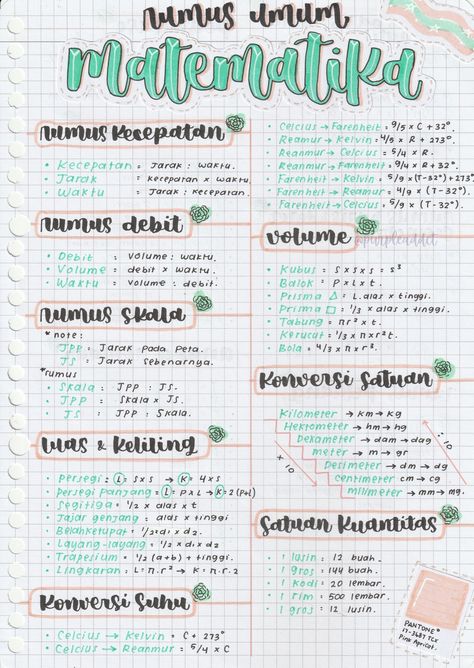 rumus umum
matematika
rumus kecepatan
• Kecepatan = Jarak : waktu.
• Jarak = kecepatan x waktu.
• Waktu = Jarak : kecepatan.
rumus debit
• Debit = volume : waktu.
• Volume = debit x waktu.
• Waktu = volume : debit.
rumus skala
*note :
JPP : Jarak pada Peta.
JS : Jarak Sebenarnya.
*rumus
• Skala : JPP : JS.
• JPP : Skala x JS.
• JS : JPP : Skala.
luas & keliling
• Persegi : L = s x s → K = 4 x s
• Persegi Panjang : L = P x L → K = 2 (P+L)
• Segitiga = 1/2 x alas x t
• Jajar genjang : alas x tinggi
• Belahketupat = 1/2 x d1 x d2.
• Layang-layang = 1/2 x d1 x d2
• Trapesium = 1/2 (a+b) + tinggi.
• Lingkaran : L = π.r² → K = π.r.2
konversi suhu
• Celcius → Kelvin = C + 273°
• Celcius → Reamur = 5/4 x C
• Celcius → Farenheit = 9/5 x C + 32°.
• Reamur → Kelvin = 4/5 x R + 273°.
• Reanmur → Celcius = 5/4 x R.
• Reanmur → Farenheit = 9/4 x R + 32°.
• Farenheit → Kelvin = 5/9 x (T-32°) + 273°.
• Farenheit → Reamur = 4/9 x (T-32°).
• Farenheit → Celcius = 5/9 x (T-32°).
volume
@purpleaddct
• Kubus = s x s x s = s³
• Balok = P x L x t.
• Prisma △ = L. alas x tinggi.
• Prisma □ = 1/3 x alas x tinggi.
• Tabung = π r² x t.
• Kerucut = 1/3 x π x r² x t.
• Bola = 4/3 x π x r³.
konversi satuan
Kilometer → km → kg
Hektometer → hm → hg
Dekameter → dam → dag
meter → m → gr
Desimeter → dm → dg
centimeter → cm → cg
milimeter → mm → mg.
x 10
: 10
satuan kuantitas
• 1 lusin = 12 buah.
• 1 gros = 144 buah.
• 1 kodi = 20 lembar.
• 1 rim = 500 lembar.
• 1 gros = 12 lusin.
PANTONE®
Pink Apricot.